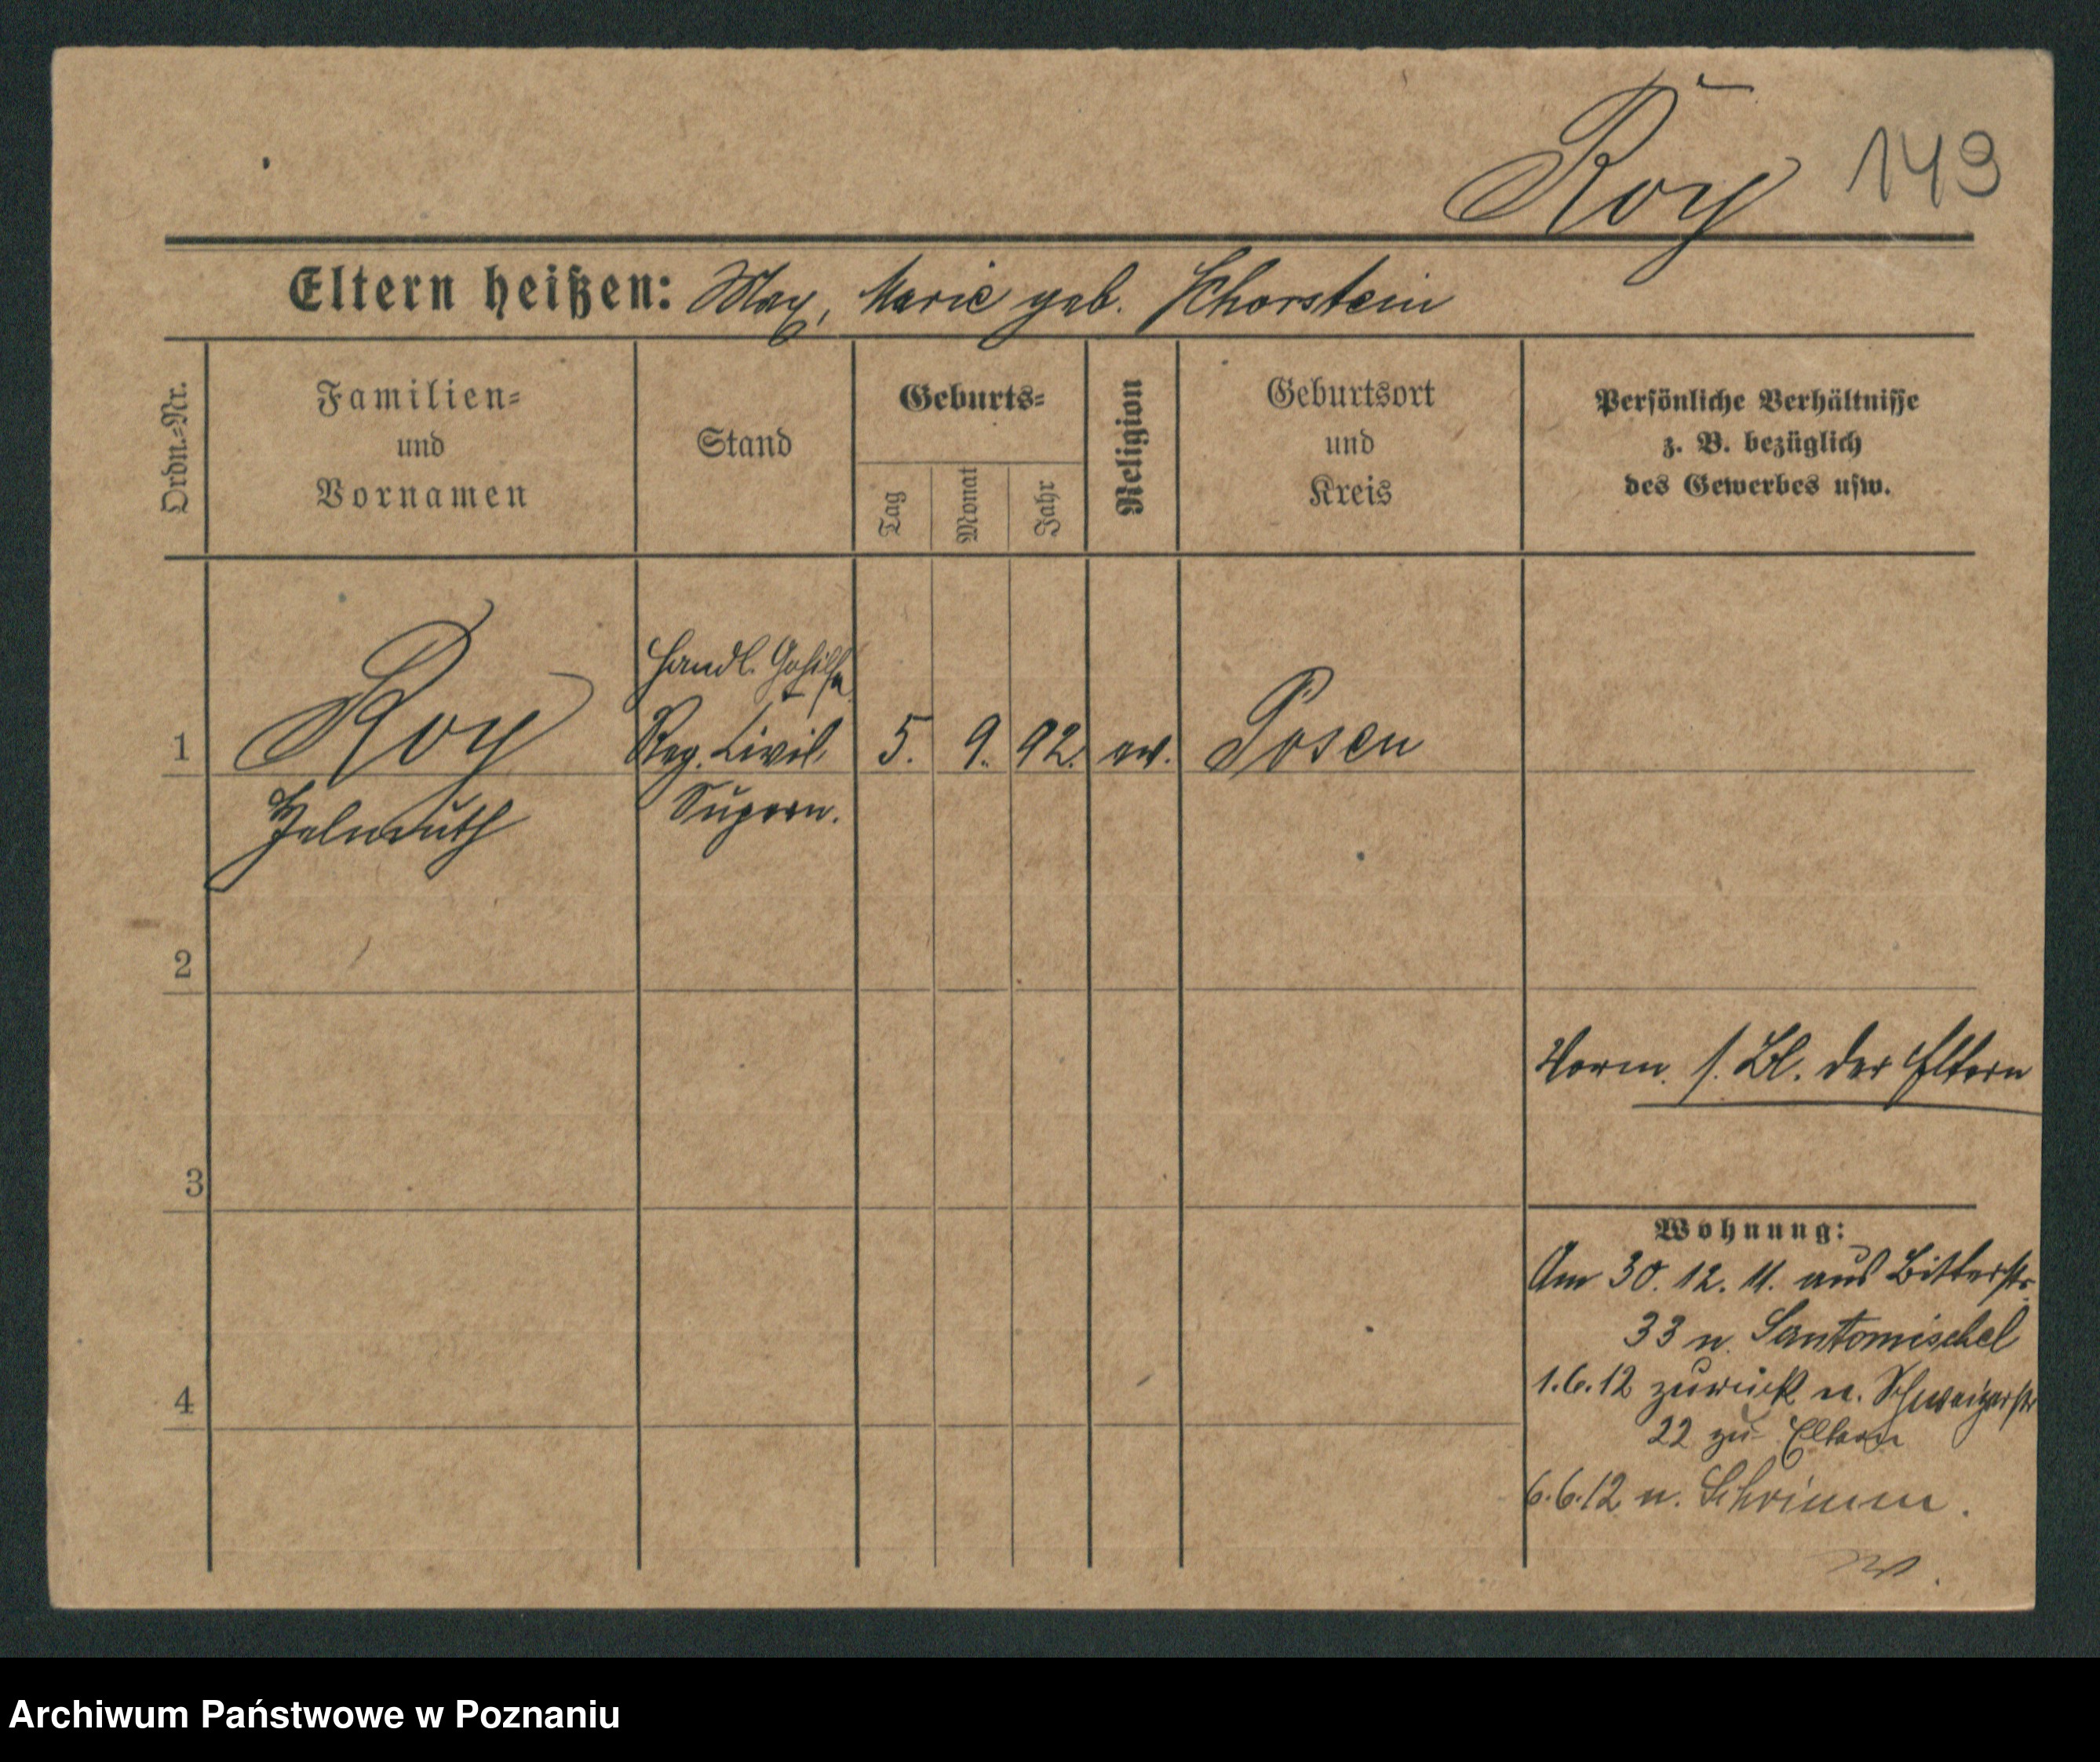 Roy 143
Eltern heißen: Max, Marie geb. Schorstein
Ordn.=Nr.
Familien=
und
Vornamen
Stand
Geburts=
Tag
Monat
Jahr
Religion
Geburtsort
und
Kreis
Persönliche Verhältnisse
z. B. bezüglich
des Gewerbes usw.
Handl. Gehilfe
1 Roy Reg. Civil 5. 9. 92. ev. Posen
Helmuth Supern.
2
Vorm. s. Bl. der Eltern
3
Wohnung:
Am 30. 12. 11. aus Bitterstr.
33 n. Santomischel
1.6.12 zurück n.
4
22 zu Eltern
6.6.12 n. Schrimm.
Archiwum Państwowe w Poznaniu